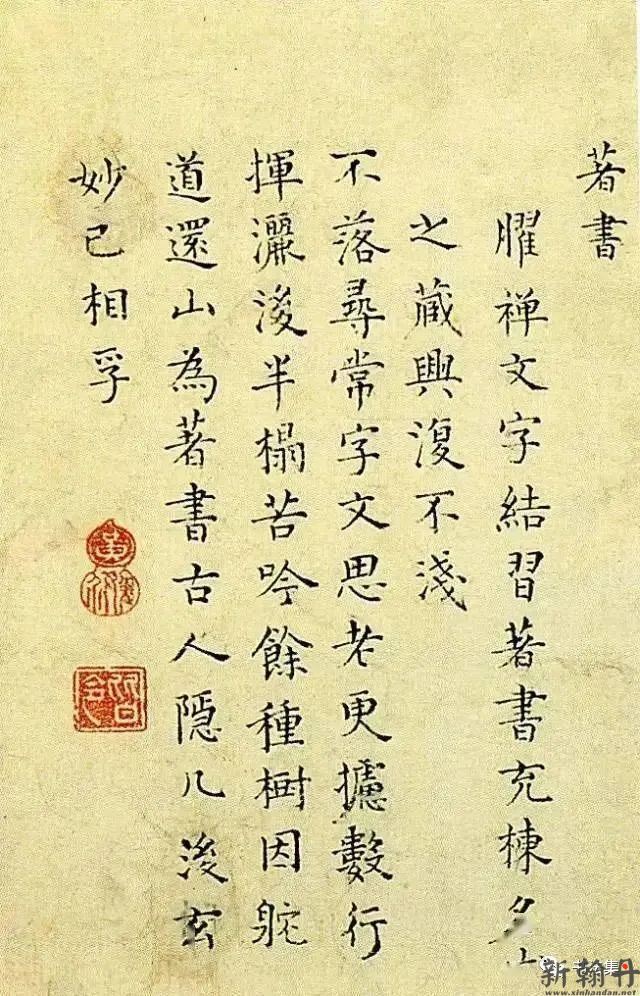 著書
臞禅文字結習著書充棟
之蔵興復不淺
不落尋常字文思老更攄數行
揮灑後半榻苦吟餘種樹因躭
道還山為著書古人隠几後玄
妙已相孚
集
新翰丹
www.xinhandan.net